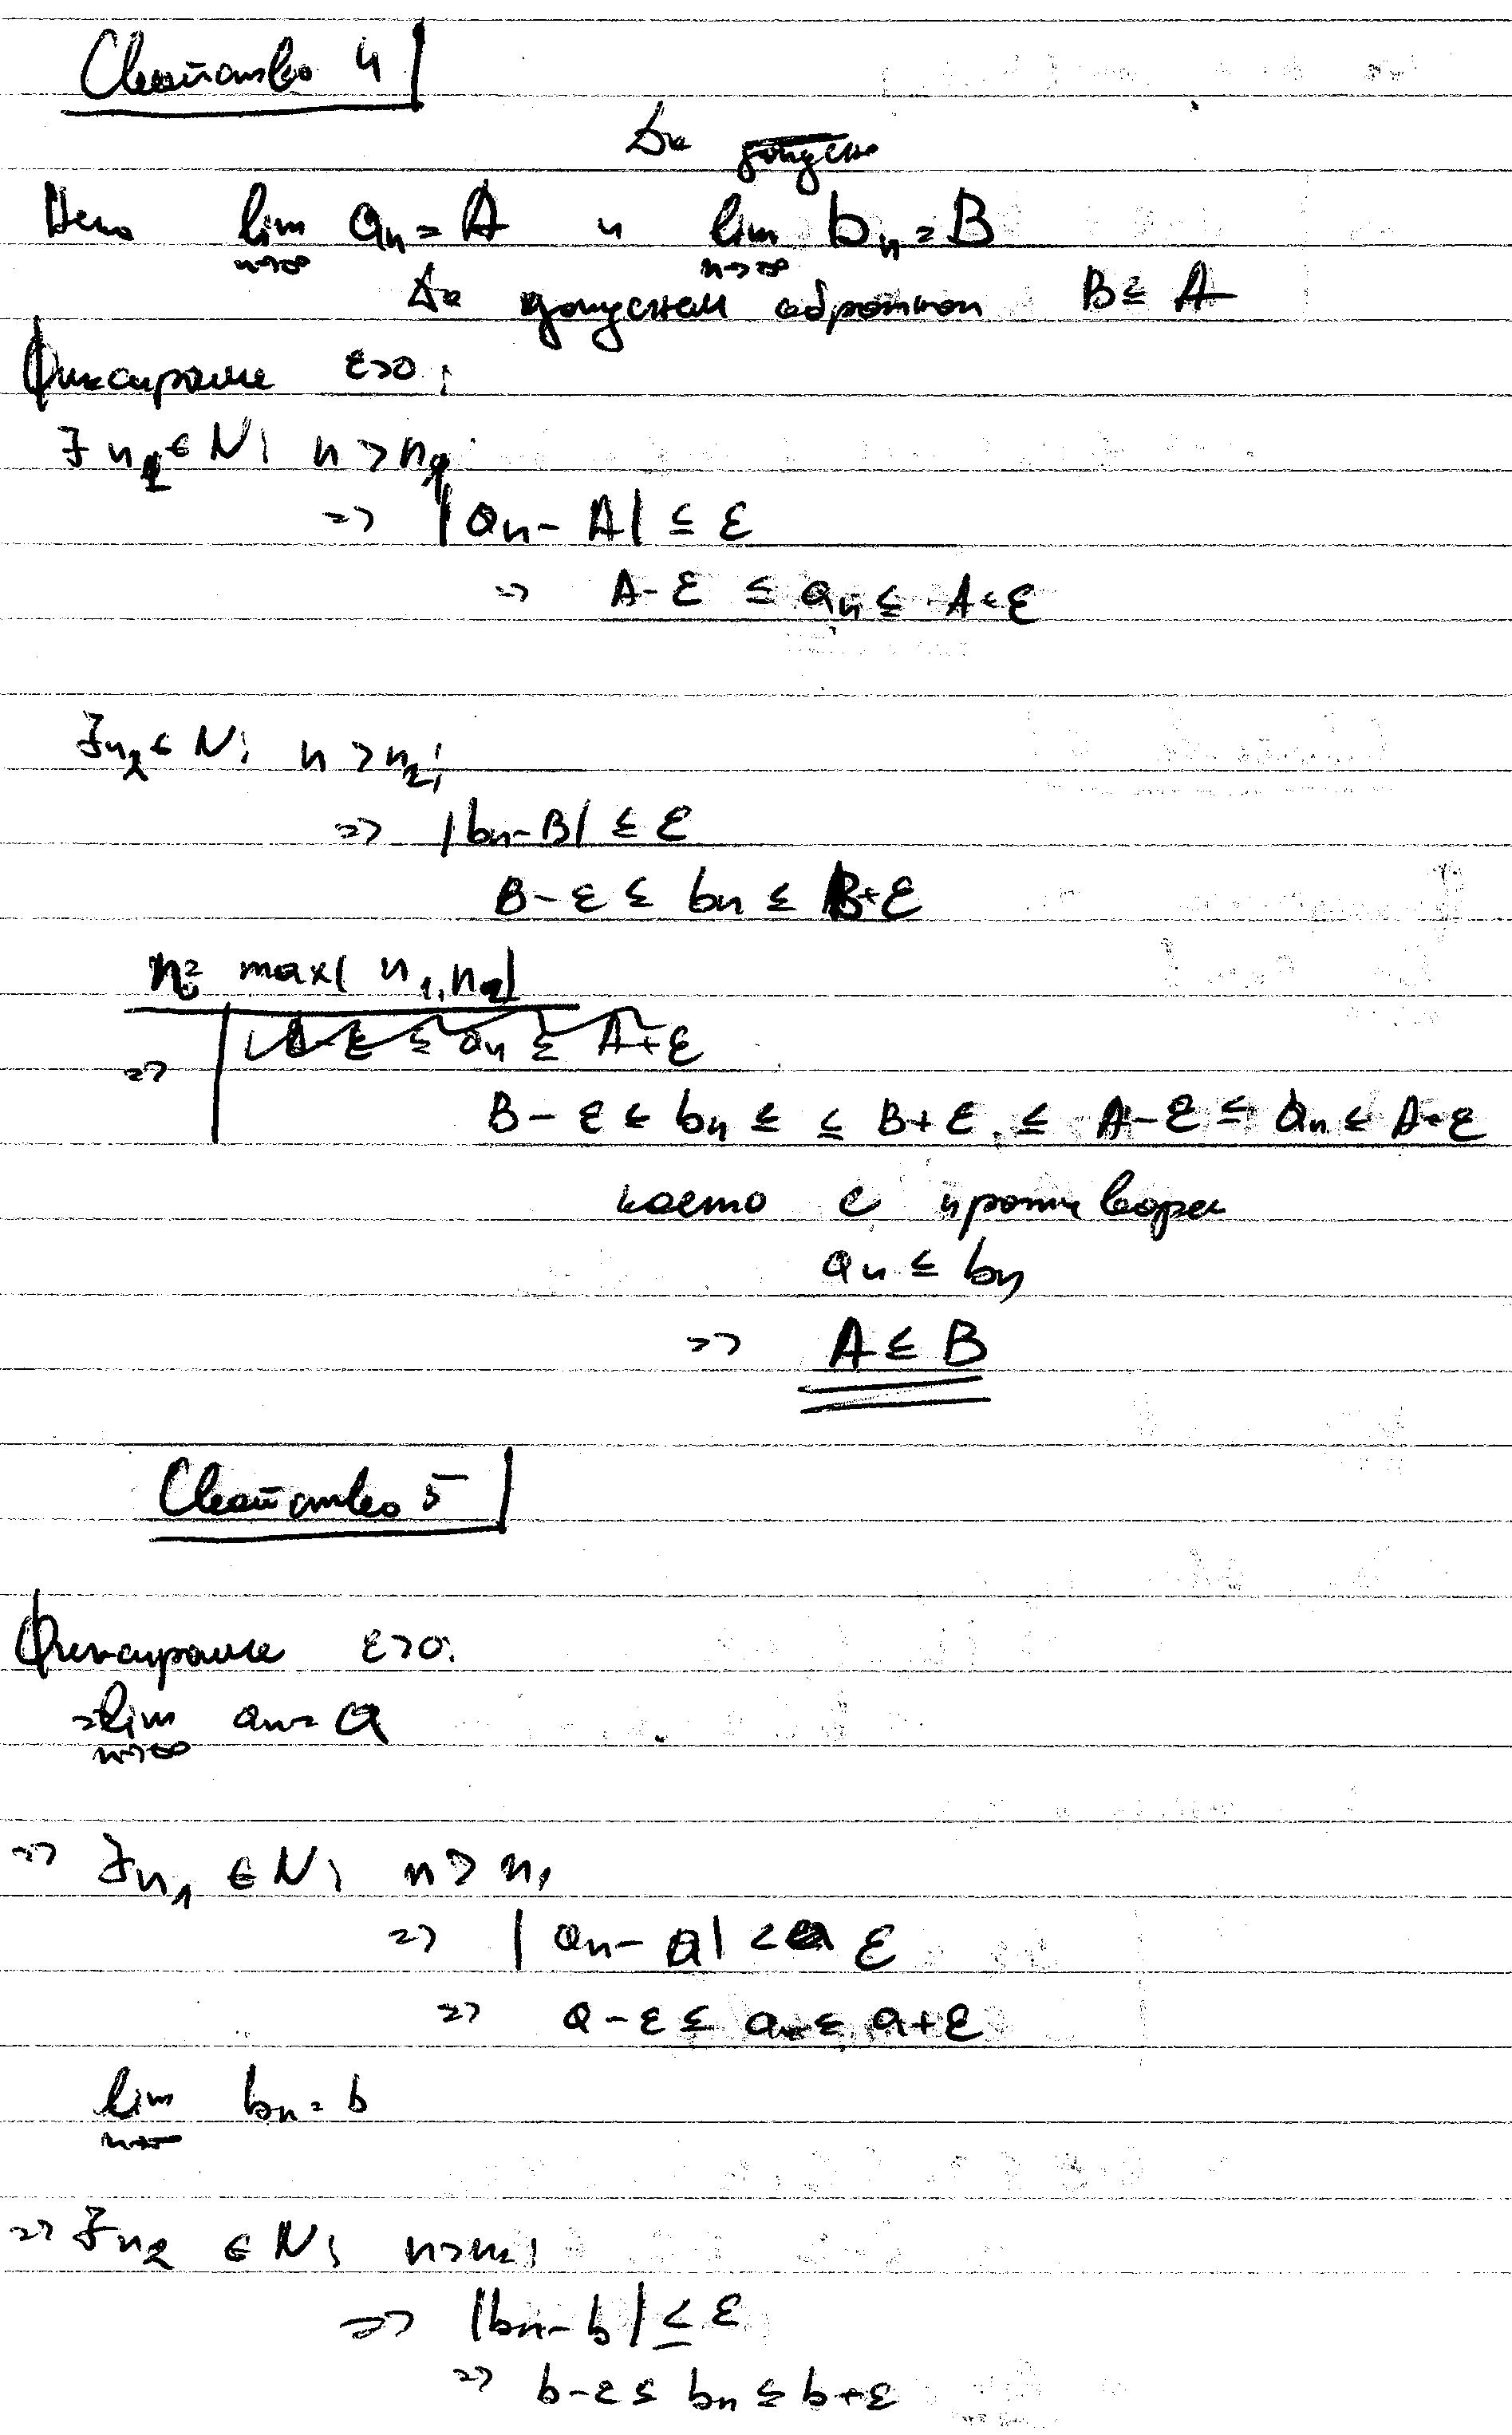 Свойство 4
Да допусне
Нека lim n→∞ aₙ = A и lim n→∞ bₙ = B
Да допуснем обратното B ≤ A
Фиксираме ε>0;
∃ n₁ ∈ N; n > n₁
=> |aₙ - A| ≤ ε
=> A - ε ≤ aₙ ≤ A + ε
∃ n₂ ∈ N; n > n₂;
=> |bₙ - B| ≤ ε
B - ε ≤ bₙ ≤ B + ε
n₀ = max( n₁, n₂)
=> A - ε ≤ aₙ ≤ A + ε
B - ε ≤ bₙ ≤ ≤ B + ε ≤ A - ε ≤ aₙ ≤ A + ε
което е противореч
aₙ ≤ bₙ
=> A ≤ B
Свойство 5
Фиксираме ε>0:
=> lim n→∞ aₙ = a
=> ∃ n₁ ∈ N; n > n₁
=> | aₙ - a| < ε
=> a - ε ≤ aₙ ≤ a + ε
lim bₙ = b
=> ∃ n₂ ∈ N;
=> |bₙ - b| ≤ ε
=> b - ε ≤ bₙ ≤ b + ε